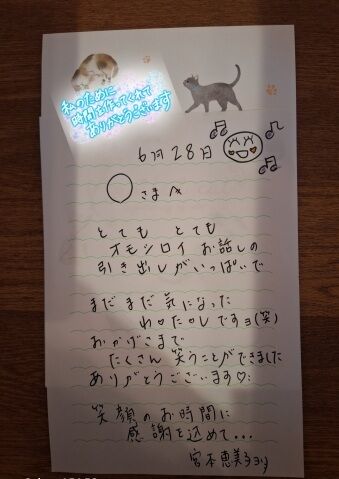 私のために
時間を作ってくれて
ありがとうございます
6月28日
〇さまへ
とても とても
オモシロイ お話しの
引き出しがいっぱいで
まだまだ気になった
わ♡た♡しですョ(笑)
おかげさまで
たくさん笑うことができました
ありがとうございます♡
笑顔のお時間に
感謝を込めて...
宮本恵美子より